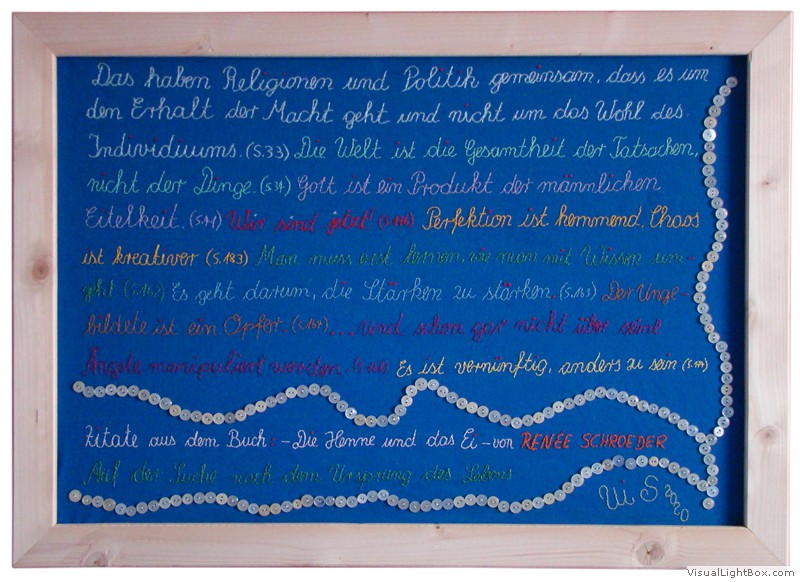 Das haben Religionen und Politik gemeinsam, dass es um
den Erhalt der Macht geht und nicht um das Wohl des
Individuums. (S.33) Die Welt ist die Gesamtheit der Tatsachen,
nicht der Dinge. (S.34) Gott ist ein Produkt der männlichen
Eitelkeit. Wir sind jetzt! Perfektion ist hemmend, Chaos
ist kreativer (S.183) Man muss erst lernen, wie man mit Wissen um-
geht Es geht darum, die Stärken zu stärken. Der Unge-
bildete ist ein Opfer. ...und schon gar nicht über seine
Ängste manipuliert werden. Es ist vernünftig, anders zu sein
Zitate aus dem Buch: -Die Henne und das Ei- von RENÉE SCHROEDER
Auf der Suche nach dem Ursprung des Lebens
S 2020
VisualLightBox.com